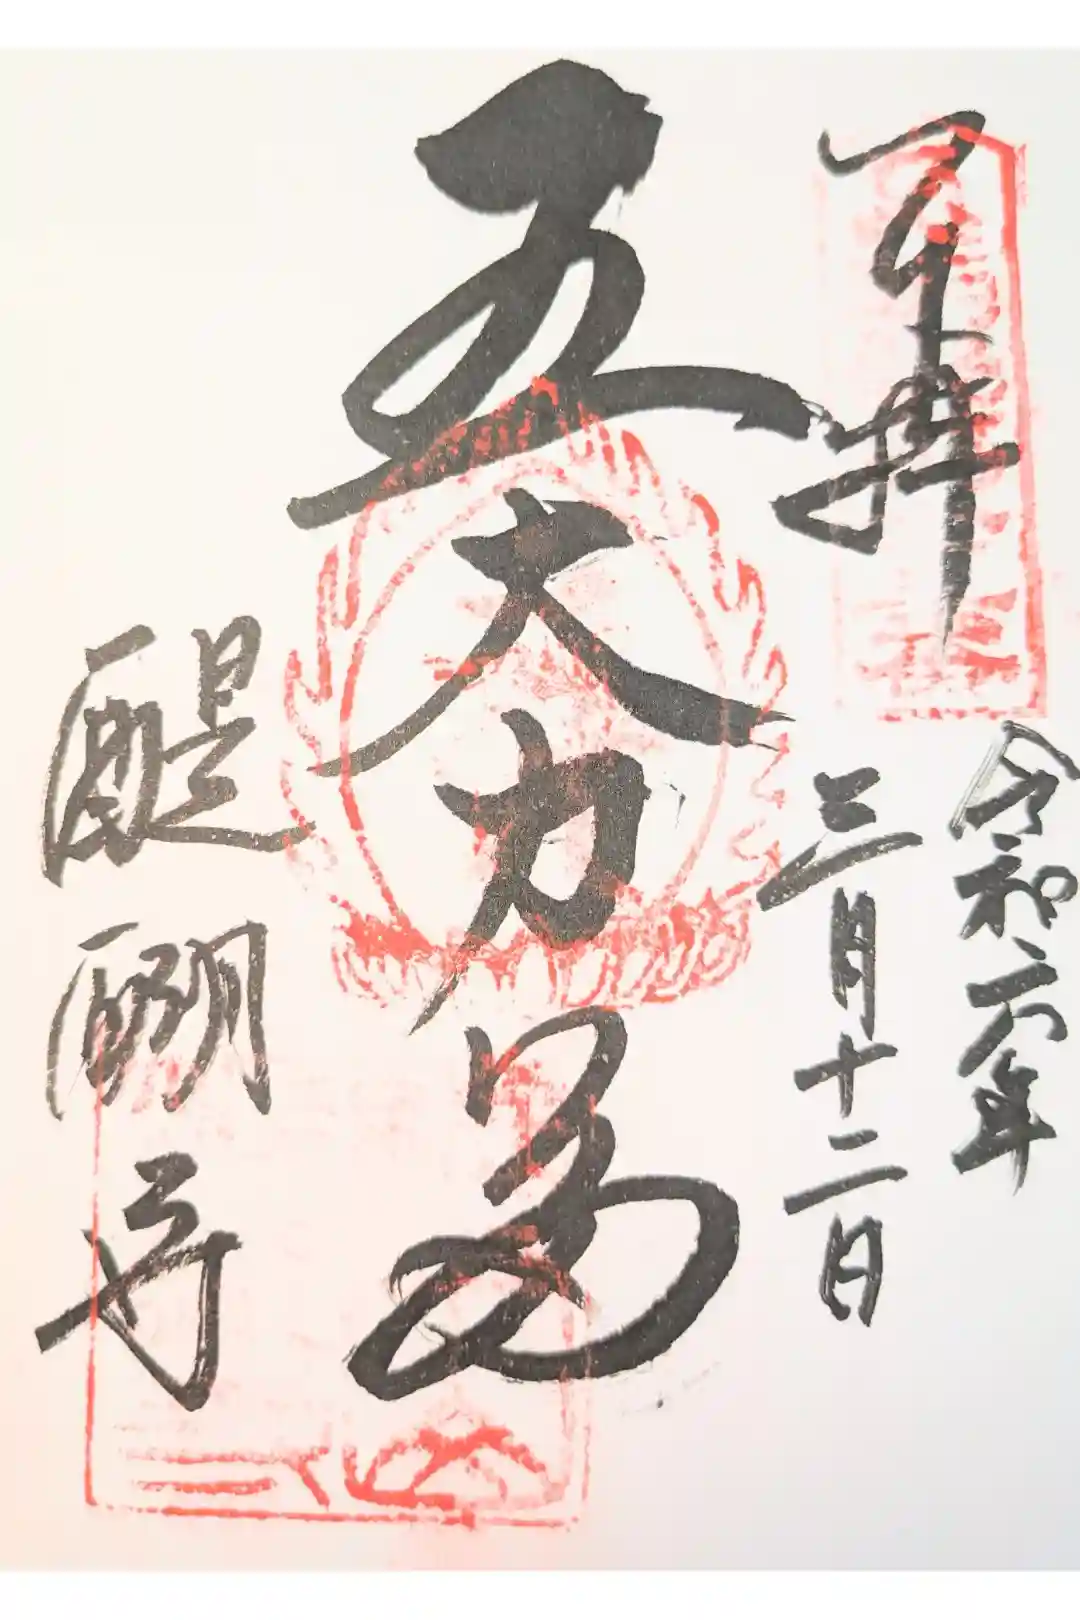 奉拝
令和六年
三月十二日
五大力
醍醐寺